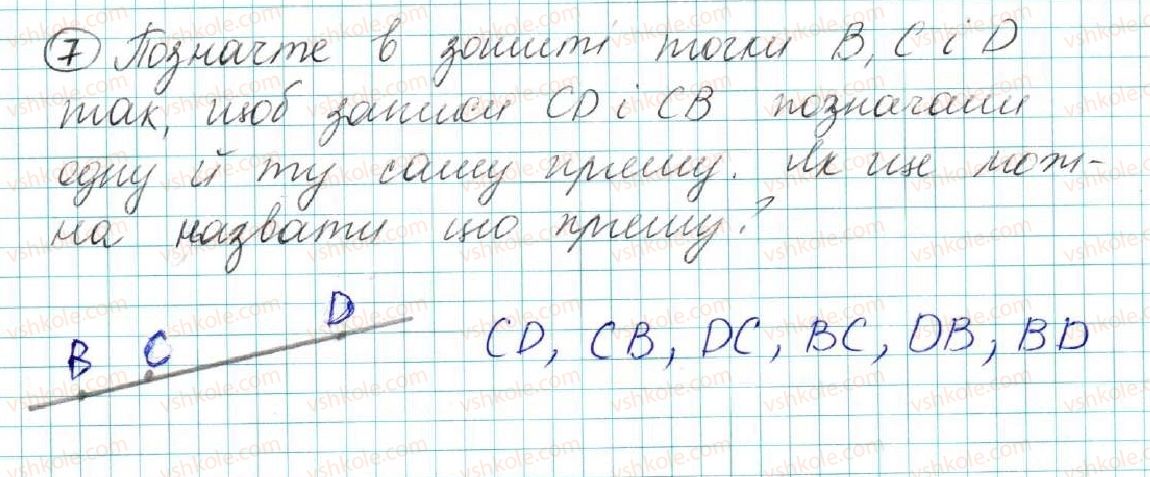 7 Позначте в зошиті точки B, C і D
так, щоб записи CD і CB позначали
одну й ту саму пряму. Як ще мож-
на назвати цю пряму?
B C D
CD, CB, DC, BC, DB, BD
vshkole.com